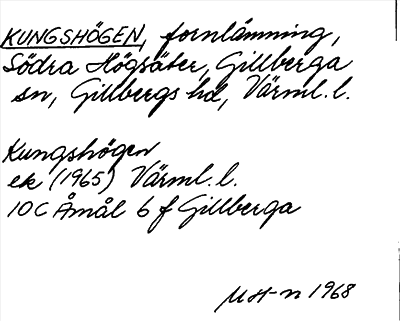 KUNGSHÖGEN, fornlämning,
Södra Högsäter, Gillberga
sn, Gillbergs hd, Värml. l.
Kungshögen
ek (1965) Värml. l.
10C Åmål 6 f Gillberga
MH-n 1968